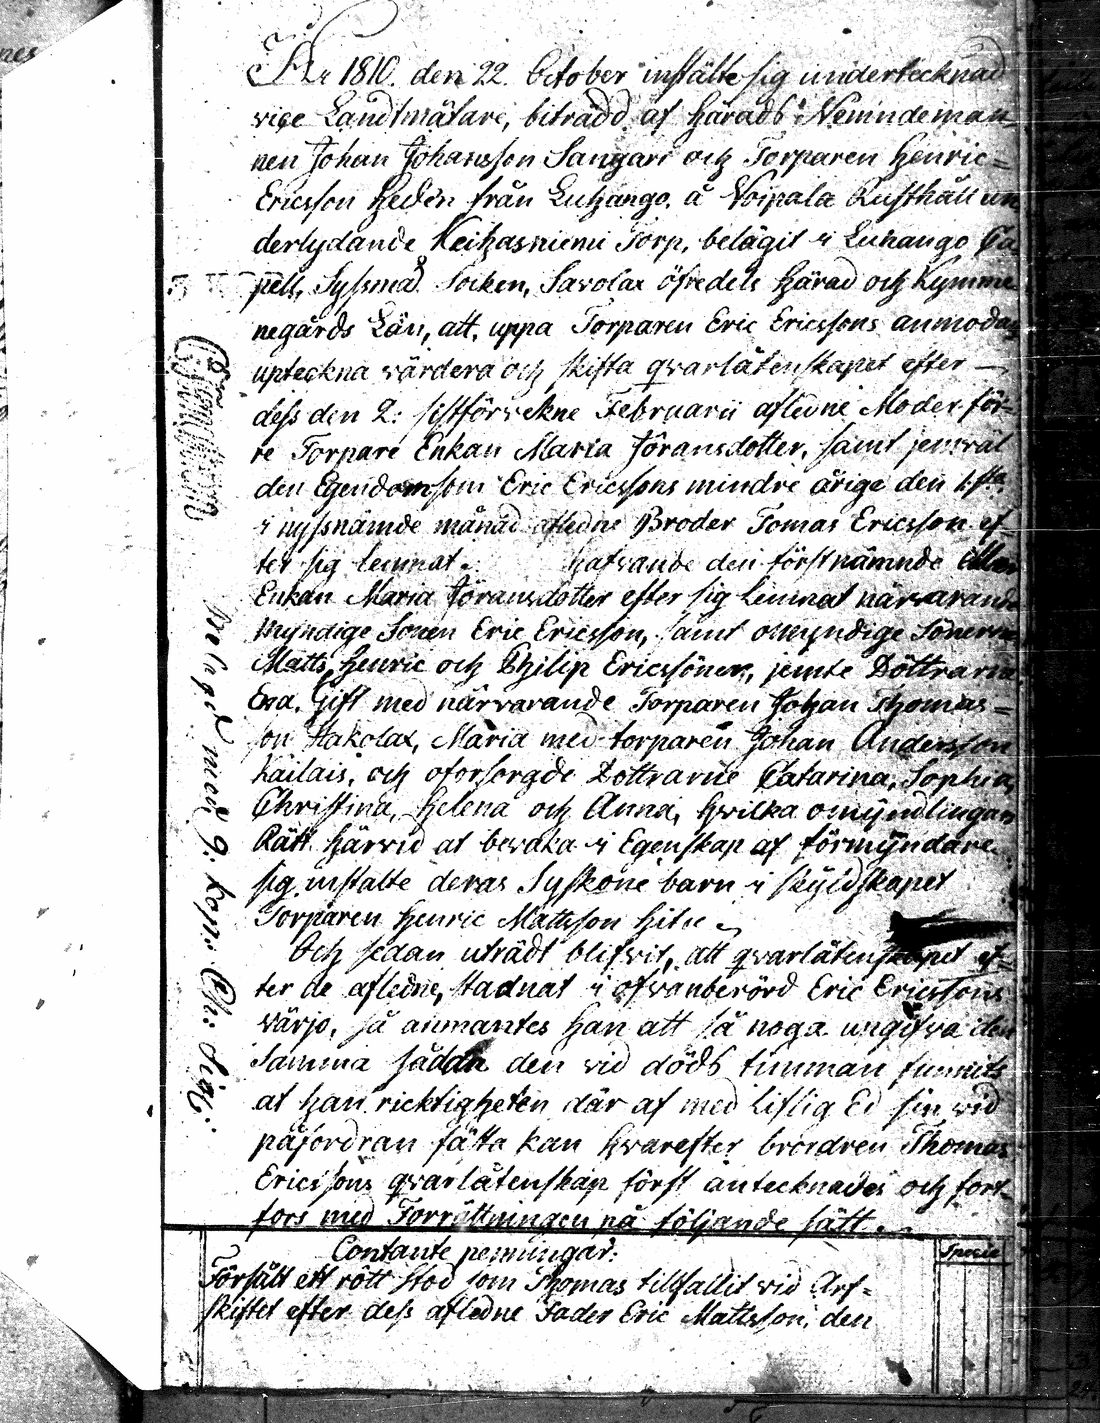 År 1810. den 22. October instälte sig undertecknad
vice Landtmätare, biträdd af Härads Nemndeman-
nen Johan Johansson Sangari och Torparen Henric=
Ericsson Hedén från Luhango, å Voipala Rusthåll un
derlydande Keihasniemi Torp, belägit i Luhango Ca
pell, Syssmä Socken, Savolax öfredels Härad och Kymme
negårds Län, att, uppa Torparen Eric Ericssons anmodan
upteckna värdera och skifta qvarlåtenskapet efter —
dess den 2: sistförvekne Februarii afledne Moder för-
re Torpare Enkan Maria Jöransdotter, samt jemväl
den Egendom som Eric Ericssons mindre årige den 1sta
i nyssnämde månad afledne Broder Tomas Ericsson ef-
ter sig lemnat. hafvande den förstnämnde
Enkan Maria Jöransdotter efter sig lemnat närvarande
myndige Sonen Eric Ericsson, samt omyndige Sönerne
Matts, Henric och Philip Ericssöner, jemte Döttrarna
Eva, Gift med närvarande Torparen Johan Thomas=
son Hakolax, Maria med torparen Johan Andersson
Kailais, och oforsorgde Dottrarne Catarina, Sophia,
Christina, Helena och Anna, hvilka omyndlingars
Rätt härvid at bevaka i Egenskap af förmyndare
sig instalte deras Syskone barn i skyldskapet
Torparen Henric Mattsson
Och sedan utrådt blifvit, att qvarlåtenskapet ef-
ter de afledne, stadnat i ofvanberörd Eric Ericssons
värjo, så anmantes han att så noga ungifva den
samma sådan den vid döds timman funnits
at han ricktigheten där af med liflig Ed sin vid
påfordran fästa kan hvarefter brordren Thomas
Ericssons qvarlåtenskap först antecknades och fort-
fors med Forrättningen på följande sätt.
Contante penningar:
Specie
Försålt ett rött Stod som Thomas tillfallit vid Arf=
skiftet efter dess afledne Fader Eric Mattsson, den
med 9. kop.